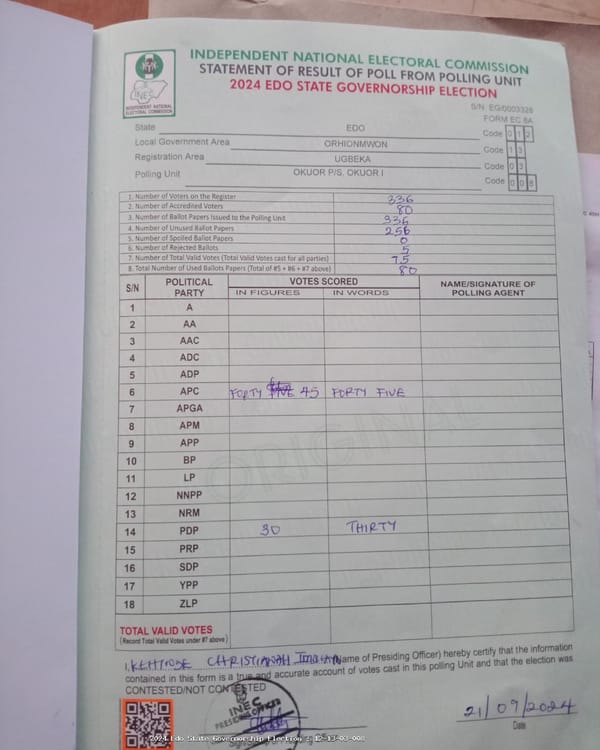 INDEPENDENT NATIONAL ELECTORAL COMMISSION
STATEMENT OF RESULT OF POLL FROM POLLING UNIT
2024 EDO STATE GOVERNORSHIP ELECTION
INEC
INDEPENDENT NATIONAL ELECTORAL COMMISSION
S/N: EG/0003328
FORM EC 8A
State EDO Code 0 1 2
Local Government Area ORHIONMWON Code 1 3
Registration Area UGBEKA Code 0 3
Polling Unit OKUOR P/S, OKUOR I Code 0 0 8
1. Number of Voters on the Register 336
2. Number of Accredited Voters 80
3. Number of Ballot Papers Issued to the Polling Unit 336
4. Number of Unused Ballot Papers 256
5. Number of Spoiled Ballot Papers 0
6. Number of Rejected Ballots 5
7. Number of Total Valid Votes (Total Valid Votes cast for all parties) 75
8. Total Number of Used Ballots Papers (Total of #5 + #6 + #7 above) 80
S/N POLITICAL PARTY VOTES SCORED NAME/SIGNATURE OF POLLING AGENT
IN FIGURES IN WORDS
1 A
2 AA
3 AAC
4 ADC
5 ADP
6 APC FORTY FIVE 45 FORTY FIVE
7 APGA
8 APM
9 APP
10 BP
11 LP
12 NNPP
13 NRM
14 PDP 30 THIRTY
15 PRP
16 SDP
17 YPP
18 ZLP
ORIGINAL
TOTAL VALID VOTES
(Record Total Valid Votes under #7 above)
I, CHRISTIANAH (Name of Presiding Officer) hereby certify that the information
contained in this form is a true and accurate account of votes cast in this polling Unit and that the election was
CONTESTED/NOT CONTESTED
INEC
PRESIDING OFFICER
21/09/2024
Date
2024 Edo State Governorship Election : 12-13-03-008